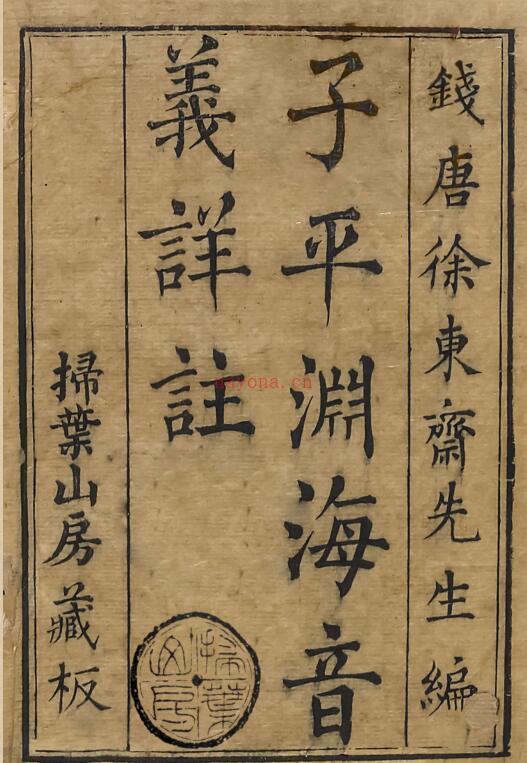 錢唐徐東齋先生編
子平淵海音
義詳註
掃葉山房藏板
掃葉山房
uayona.cn